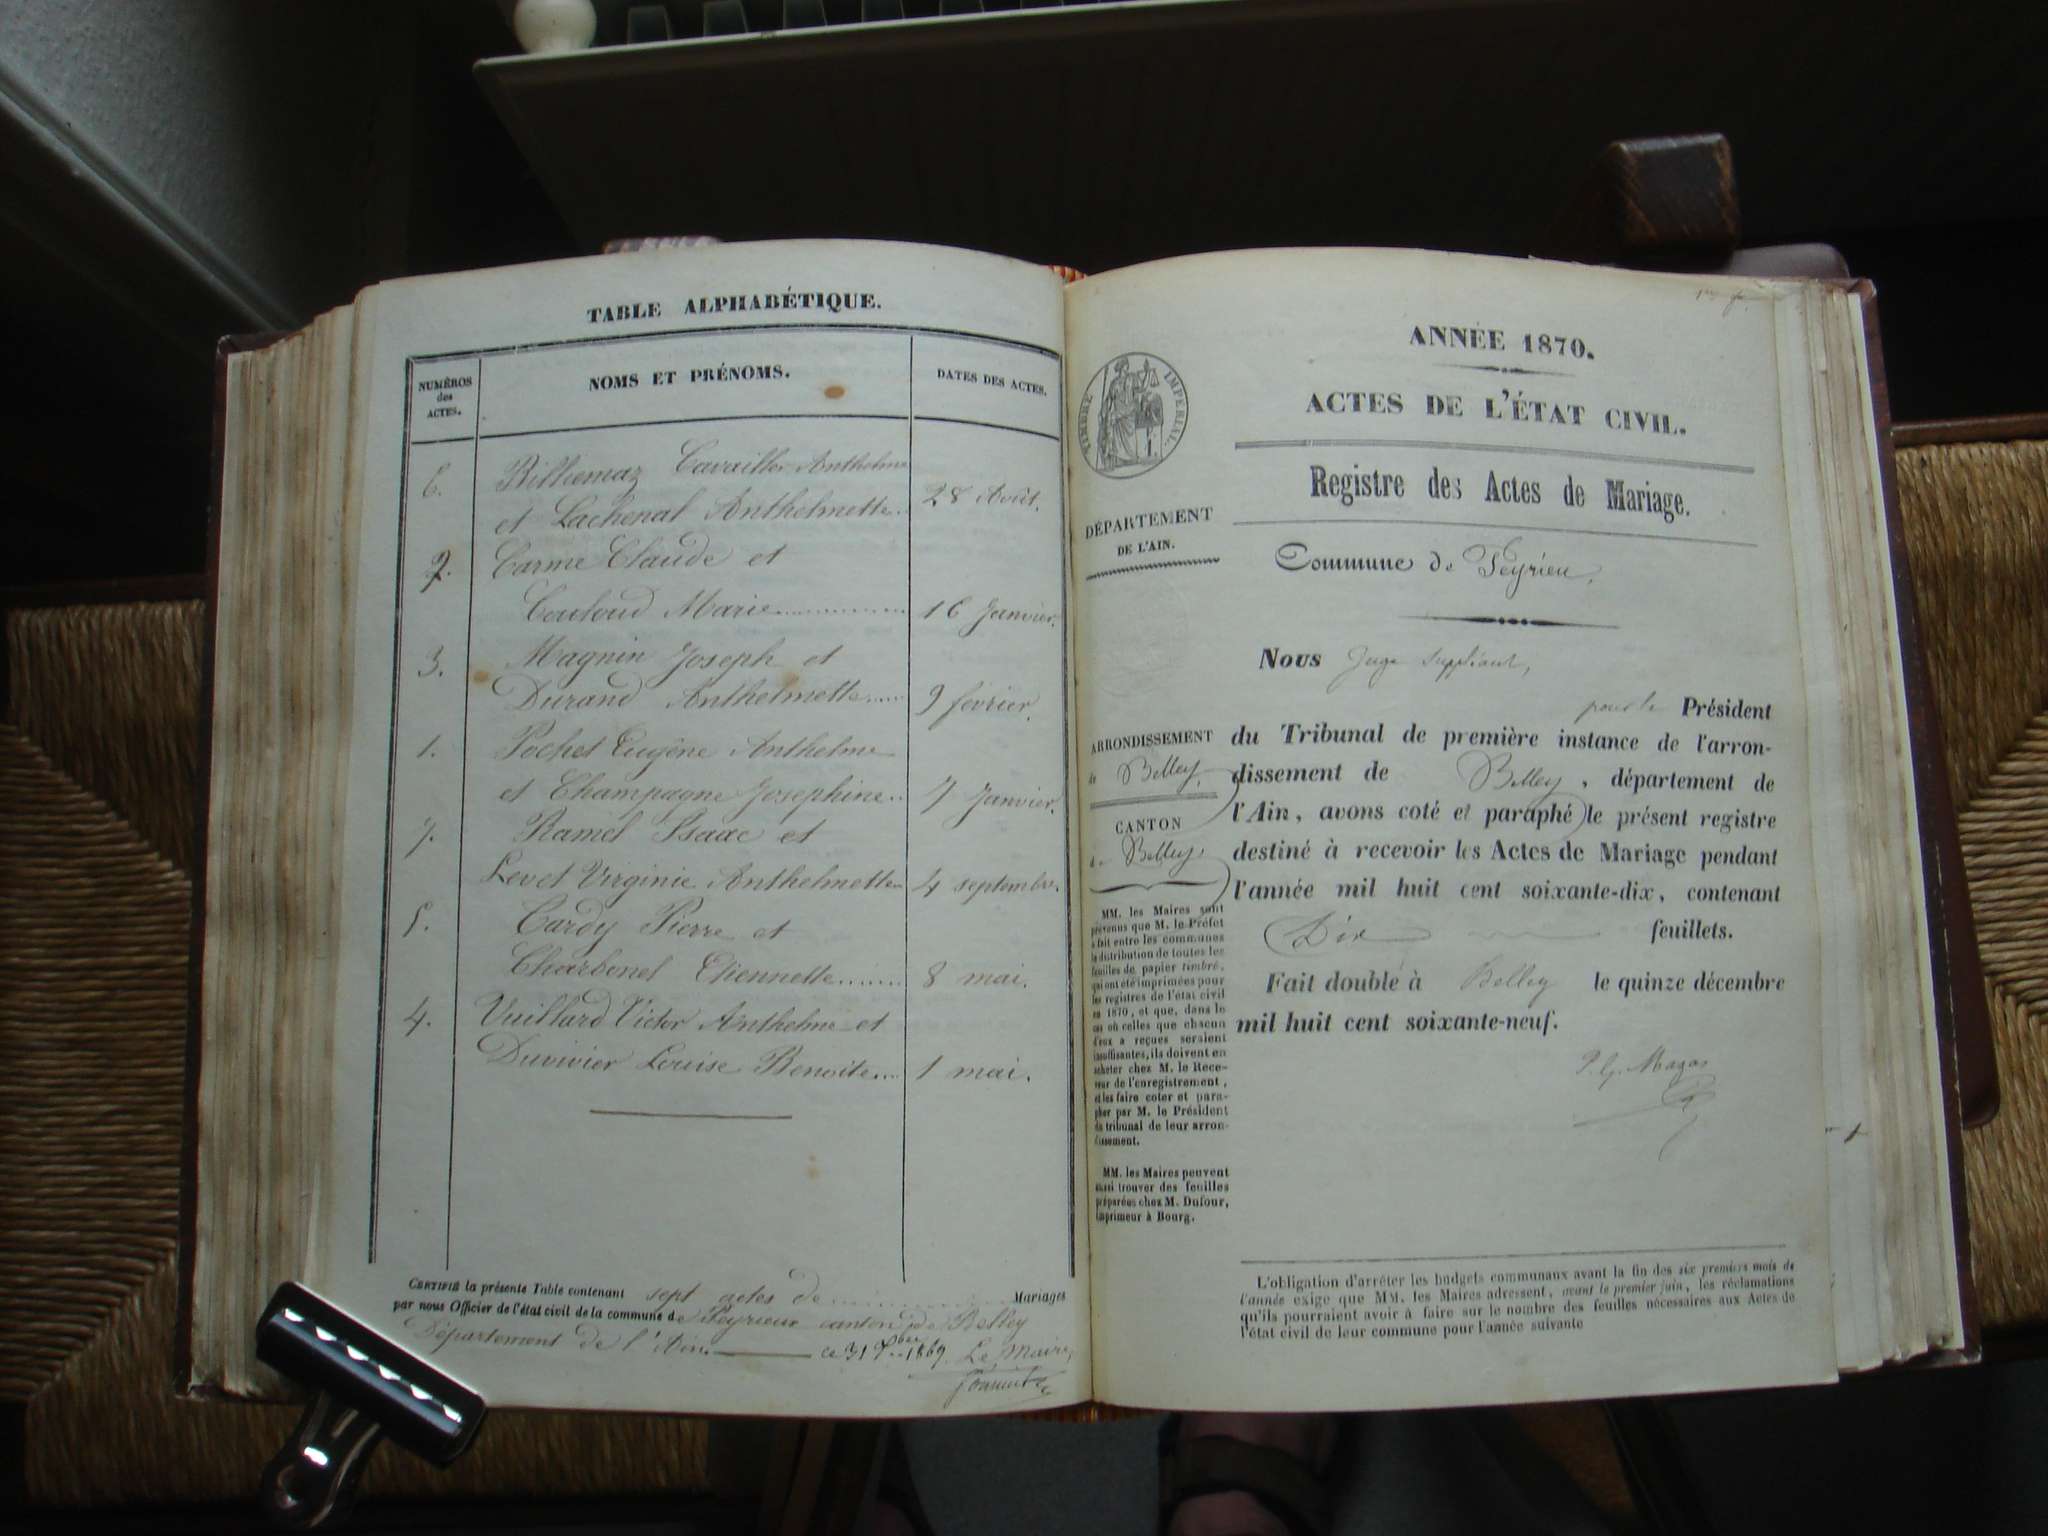 TABLE ALPHABÉTIQUE.
NUMÉROS
des
ACTES.
NOMS ET PRÉNOMS.
DATES DES ACTES.
6. Billiemaz Cavailler Anthelme
et Lachenal Anthelmette.. 28 Août.
2. Carme Claude et
Couloud Marie............... 16 Janvier.
3. Magnin Joseph et
Durand Anthelmette..... 9 février.
1. Pochet Eugène Anthelme
et Champagne Josephine.. 7 Janvier.
7. Ramel Isaac et
Levet Virginie Anthelmette 4 septembre.
5. Tardy Pierre et
Charbonet Etiennette........ 8 mai.
4. Vuillard Victor Anthelme et
Duvivier Louise Benoite.... 1 mai.
CERTIFIÉ la présente Table contenant sept actes de Mariages
par nous Officier de l'état civil de la commune de Peyrieux canton de Belley
Département de l'Ain. ce 31 Xber 1869. Le Maire,
1er f.
ANNÉE 1870.
ACTES DE L'ÉTAT CIVIL.
TIMBRE IMPERIAL.
Registre des Actes de Mariage.
DÉPARTEMENT
DE L'AIN.
Commune de Peyrieu,
Nous Juge suppléant,
pour le Président
ARRONDISSEMENT
de Belley.
CANTON
de Belley
du Tribunal de première instance de l'arron-
dissement de Belley, département de
l'Ain, avons coté et paraphé le présent registre
destiné à recevoir les Actes de Mariage pendant
l'année mil huit cent soixante-dix, contenant
Dix feuillets.
Fait double à Belley le quinze décembre
mil huit cent soixante-neuf.
MM. les Maires sont
prévenus que M. le Préfet
a fait entre les communes
la distribution de toutes les
feuilles de papier timbré,
qui ont été imprimées pour
les registres de l'état civil
en 1870, et que, dans le
cas où celles que chacun
d'eux a reçues seraient
insuffisantes, ils doivent en
acheter chez M. le Rece-
veur de l'enregistrement,
et les faire coter et para-
pher par M. le Président
du tribunal de leur arron-
dissement.
MM. les Maires peuvent
aussi trouver des feuilles
préparées chez M. Dufour,
imprimeur à Bourg.
L'obligation d'arrêter les budgets communaux avant la fin des six premiers mois de
l'année exige que MM. les Maires adressent, avant le premier juin, les réclamations
qu'ils pourraient avoir à faire sur le nombre des feuilles nécessaires aux Actes de
l'état civil de leur commune pour l'année suivante